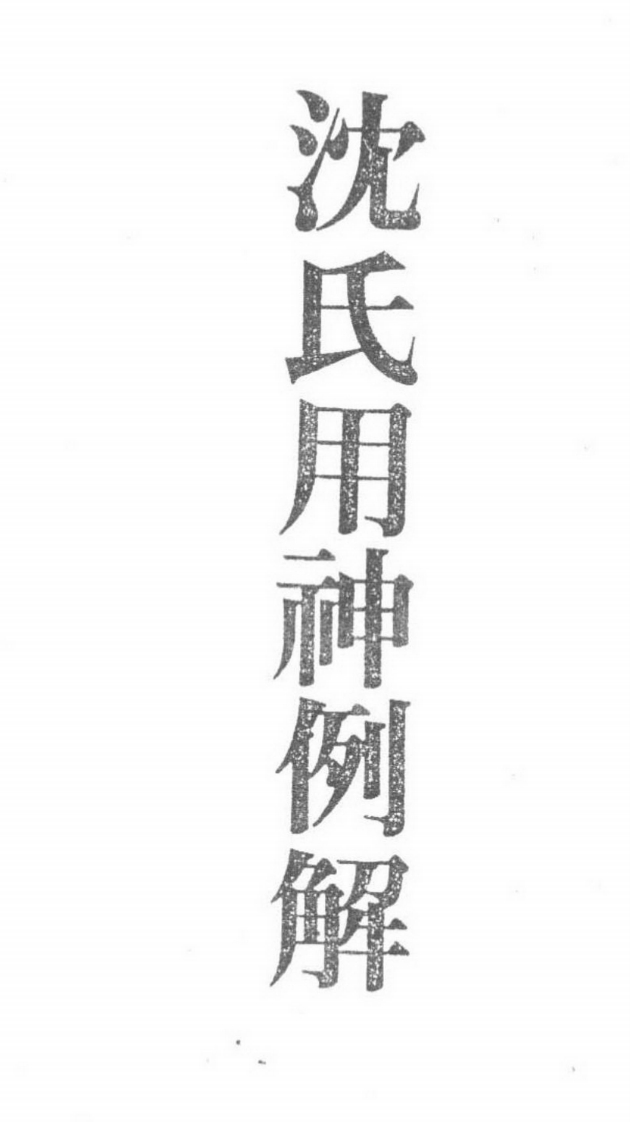 沈氏用神例解